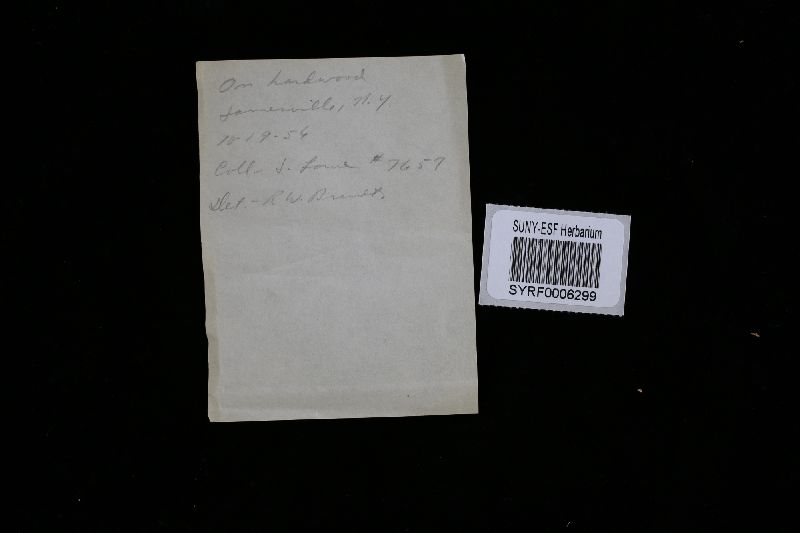 On hardwood
Jamesville, N.Y.
10-19-56
Coll. J. Lowe #7657
Det. - R.W.
SUNY-ESF Herbarium
SYRF0006299